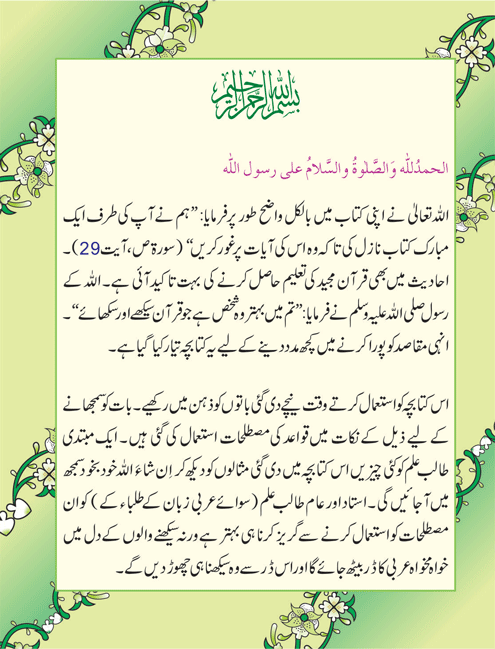 بسم اللہ الرحمن الرحیم
الحمدُللّٰه وَالصَّلٰوةُ والسَّلامُ على رسول اللّٰه
اللہ تعالیٰ نے اپنی کتاب میں بالکل واضح طور پر فرمایا: ”ہم نے آپ کی طرف ایک
مبارک کتاب نازل کی تاکہ وہ اس کی آیات پر غور کریں“ (سورۃ صٓ، آیت 29)۔
احادیث میں بھی قرآن مجید کی تعلیم حاصل کرنے کی بہت تاکید آئی ہے۔ اللہ کے
رسول صلی اللہ علیہ وسلم نے فرمایا: ”تم میں بہتر وہ شخص ہے جو قرآن سیکھے اور سکھائے“۔
انہی مقاصد کو پورا کرنے میں کچھ مدد دینے کے لیے یہ کتابچہ تیار کیا گیا ہے۔
اس کتابچہ کو استعمال کرتے وقت نیچے دی گئی باتوں کو ذہن میں رکھیے۔ بات کو سمجھانے
کے لیے ذیل کے نکات میں قواعد کی مصطلحات استعمال کی گئی ہیں۔ ایک مبتدی
طالب علم کو کئی چیزیں اس کتابچہ میں دی گئی مثالوں کو دیکھ کر اِن شاءَ اللہ خود بخود سمجھ
میں آجائیں گی۔ استاد اور عام طالب علم (سوائے عربی زبان کے طلباء کے) کو ان
مصطلحات کو استعمال کرنے سے گریز کرنا ہی بہتر ہے ورنہ سیکھنے والوں کے دل میں
خواہ مخواہ عربی کا ڈر بیٹھ جائے گا اور اس ڈر سے وہ سیکھنا ہی چھوڑ دیں گے۔